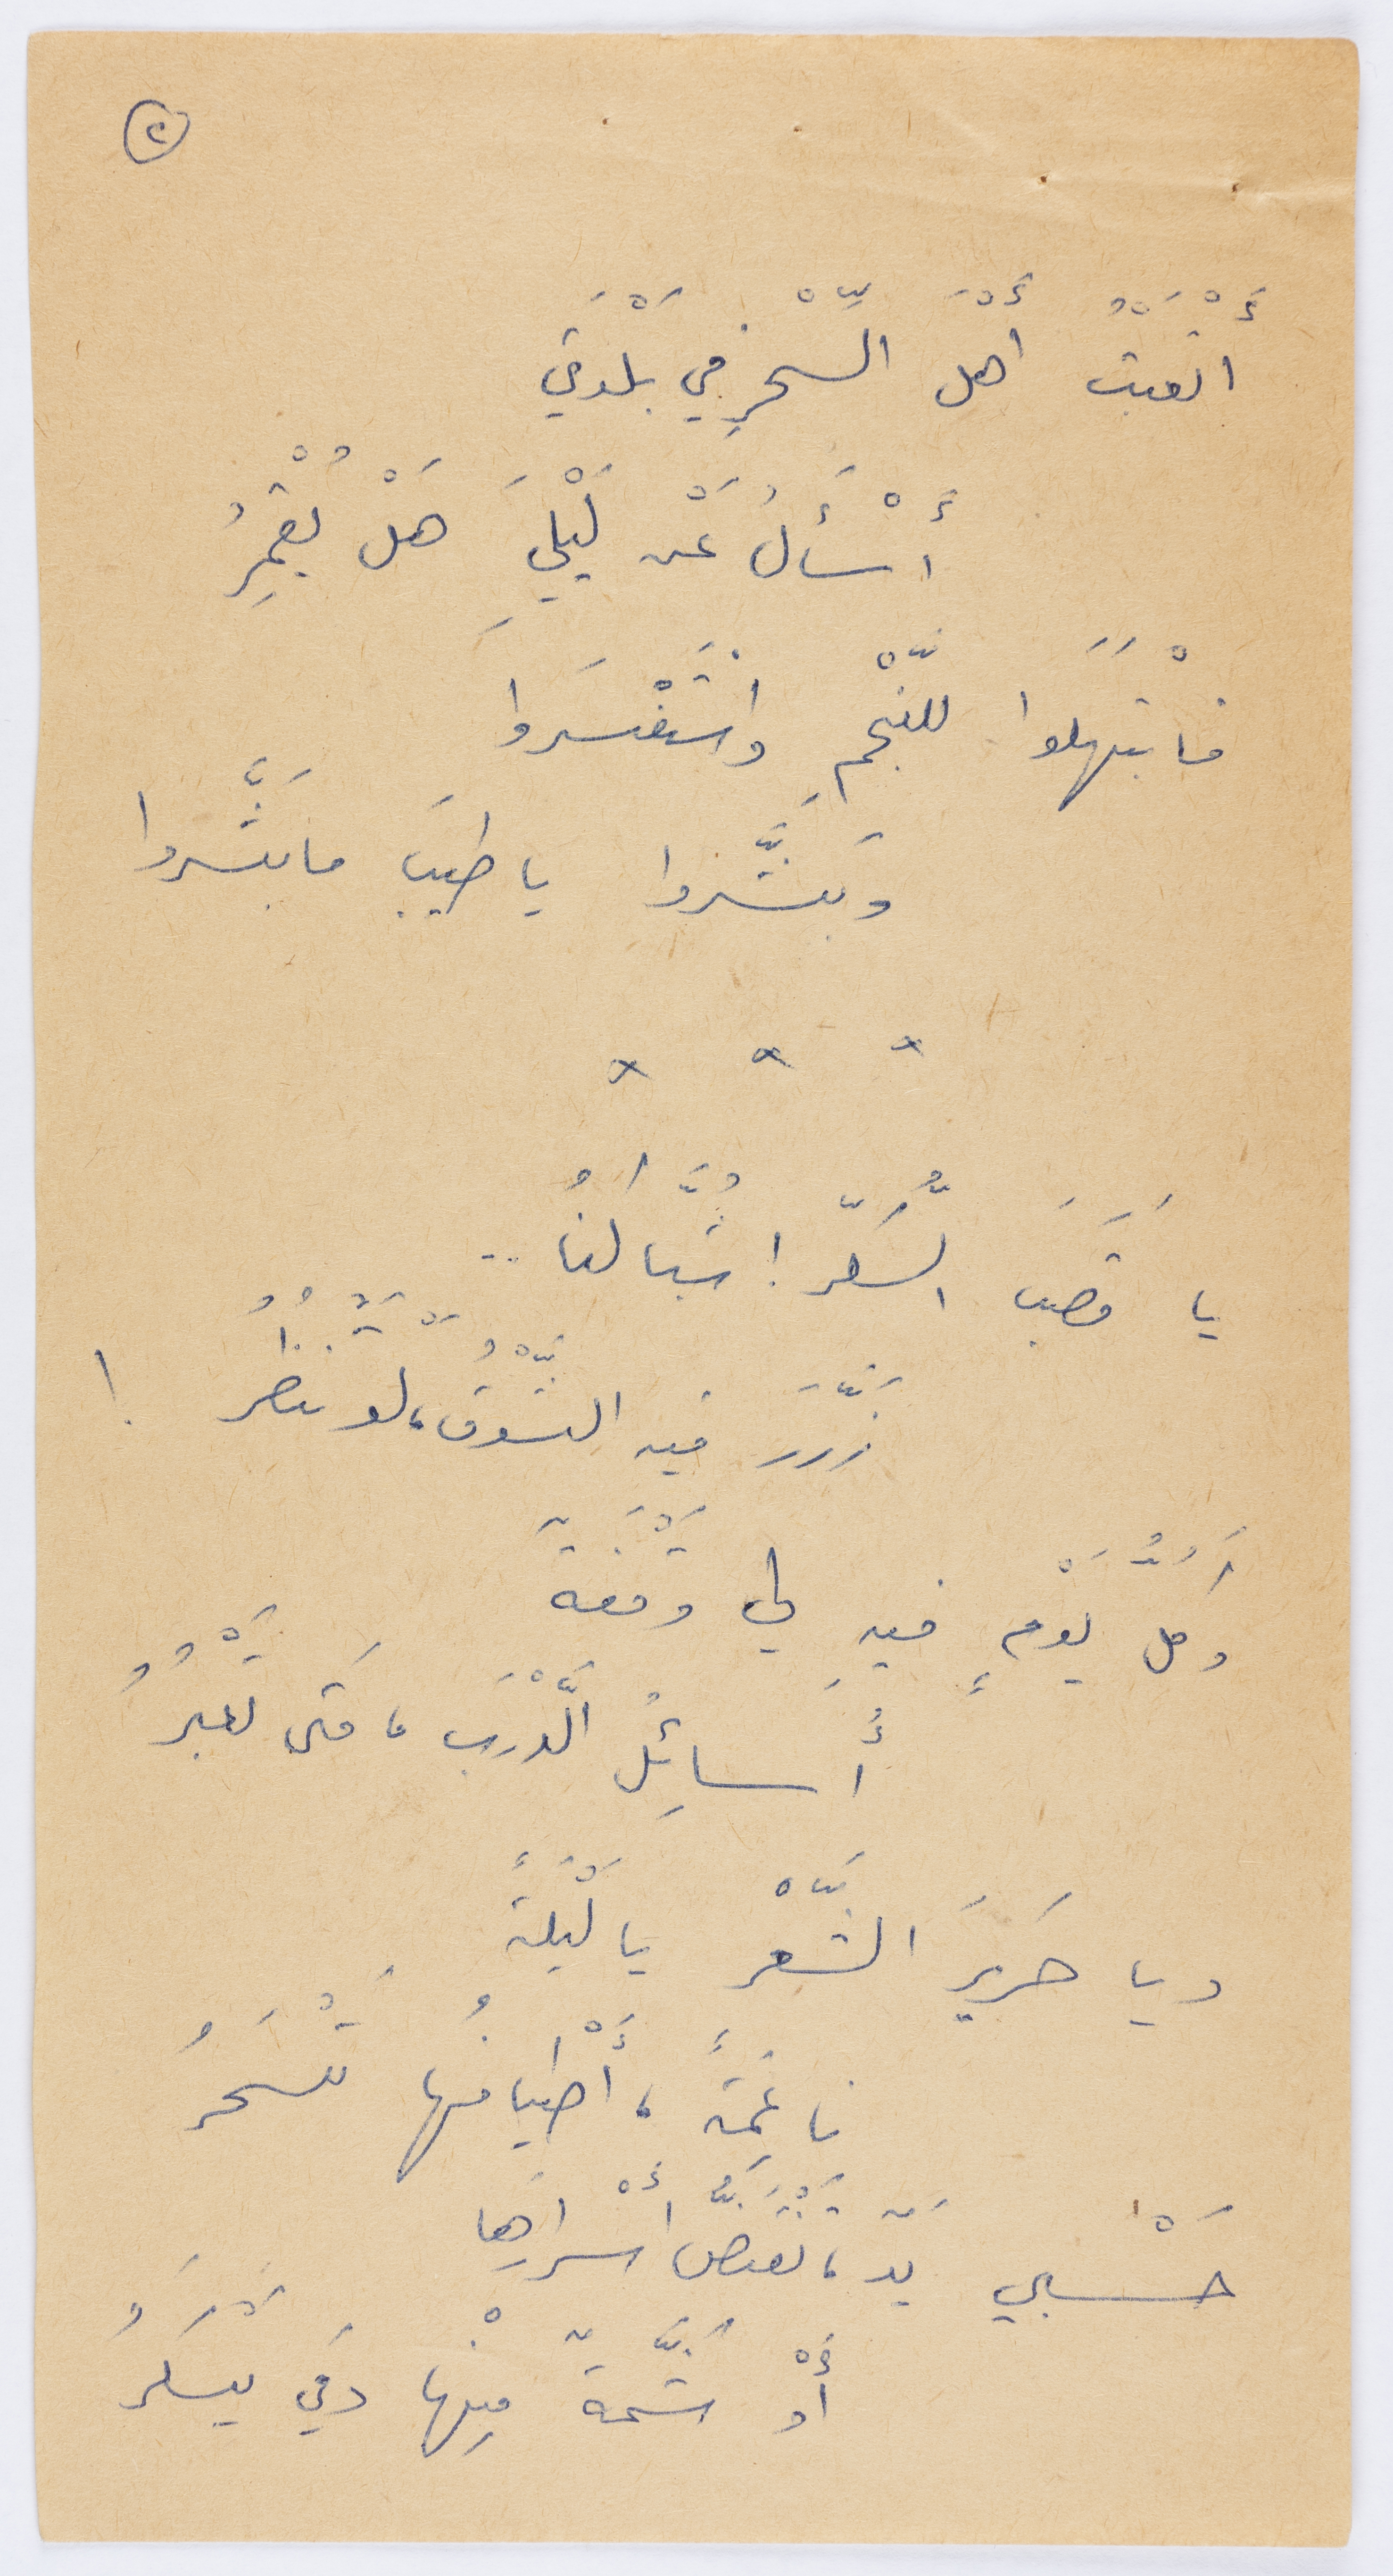 ٢
أَتْعَبْتُ أَهْلَ السِّحْرِ في بَلْدَتي
أَسْأَلُ عَنْ لَيْلِيَ هَلْ يُقْمِرُ
فابْتَهَلوا للنّجْمِ واسْتَفْسَروا
وَبَشَّروا يا طيبَ ما بَشَّروا
* * *
يا قَصَبَ السُّكَّرِ! شُبّاكُنا ..
زَرَّرَ فيه الشَّوْقُ، لو يَنْظُرُ !
وكلُّ يَوْمٍ فيهِ لي وَقْفَةٌ
أُسائِلُ الدَّرْبَ، مَتى تَعْبُرُ
ويا حَريرَ الشَّعْرِ يا لَيْلَةً
ناعِمَةً، أَطْيافُها تَسْحَرُ
حَسْبي يَدٌ، تَقْتَصُّ أَسْرارَها
أَوْ شَمَّةٌ مِنْها دَمي يَسْكَرُ